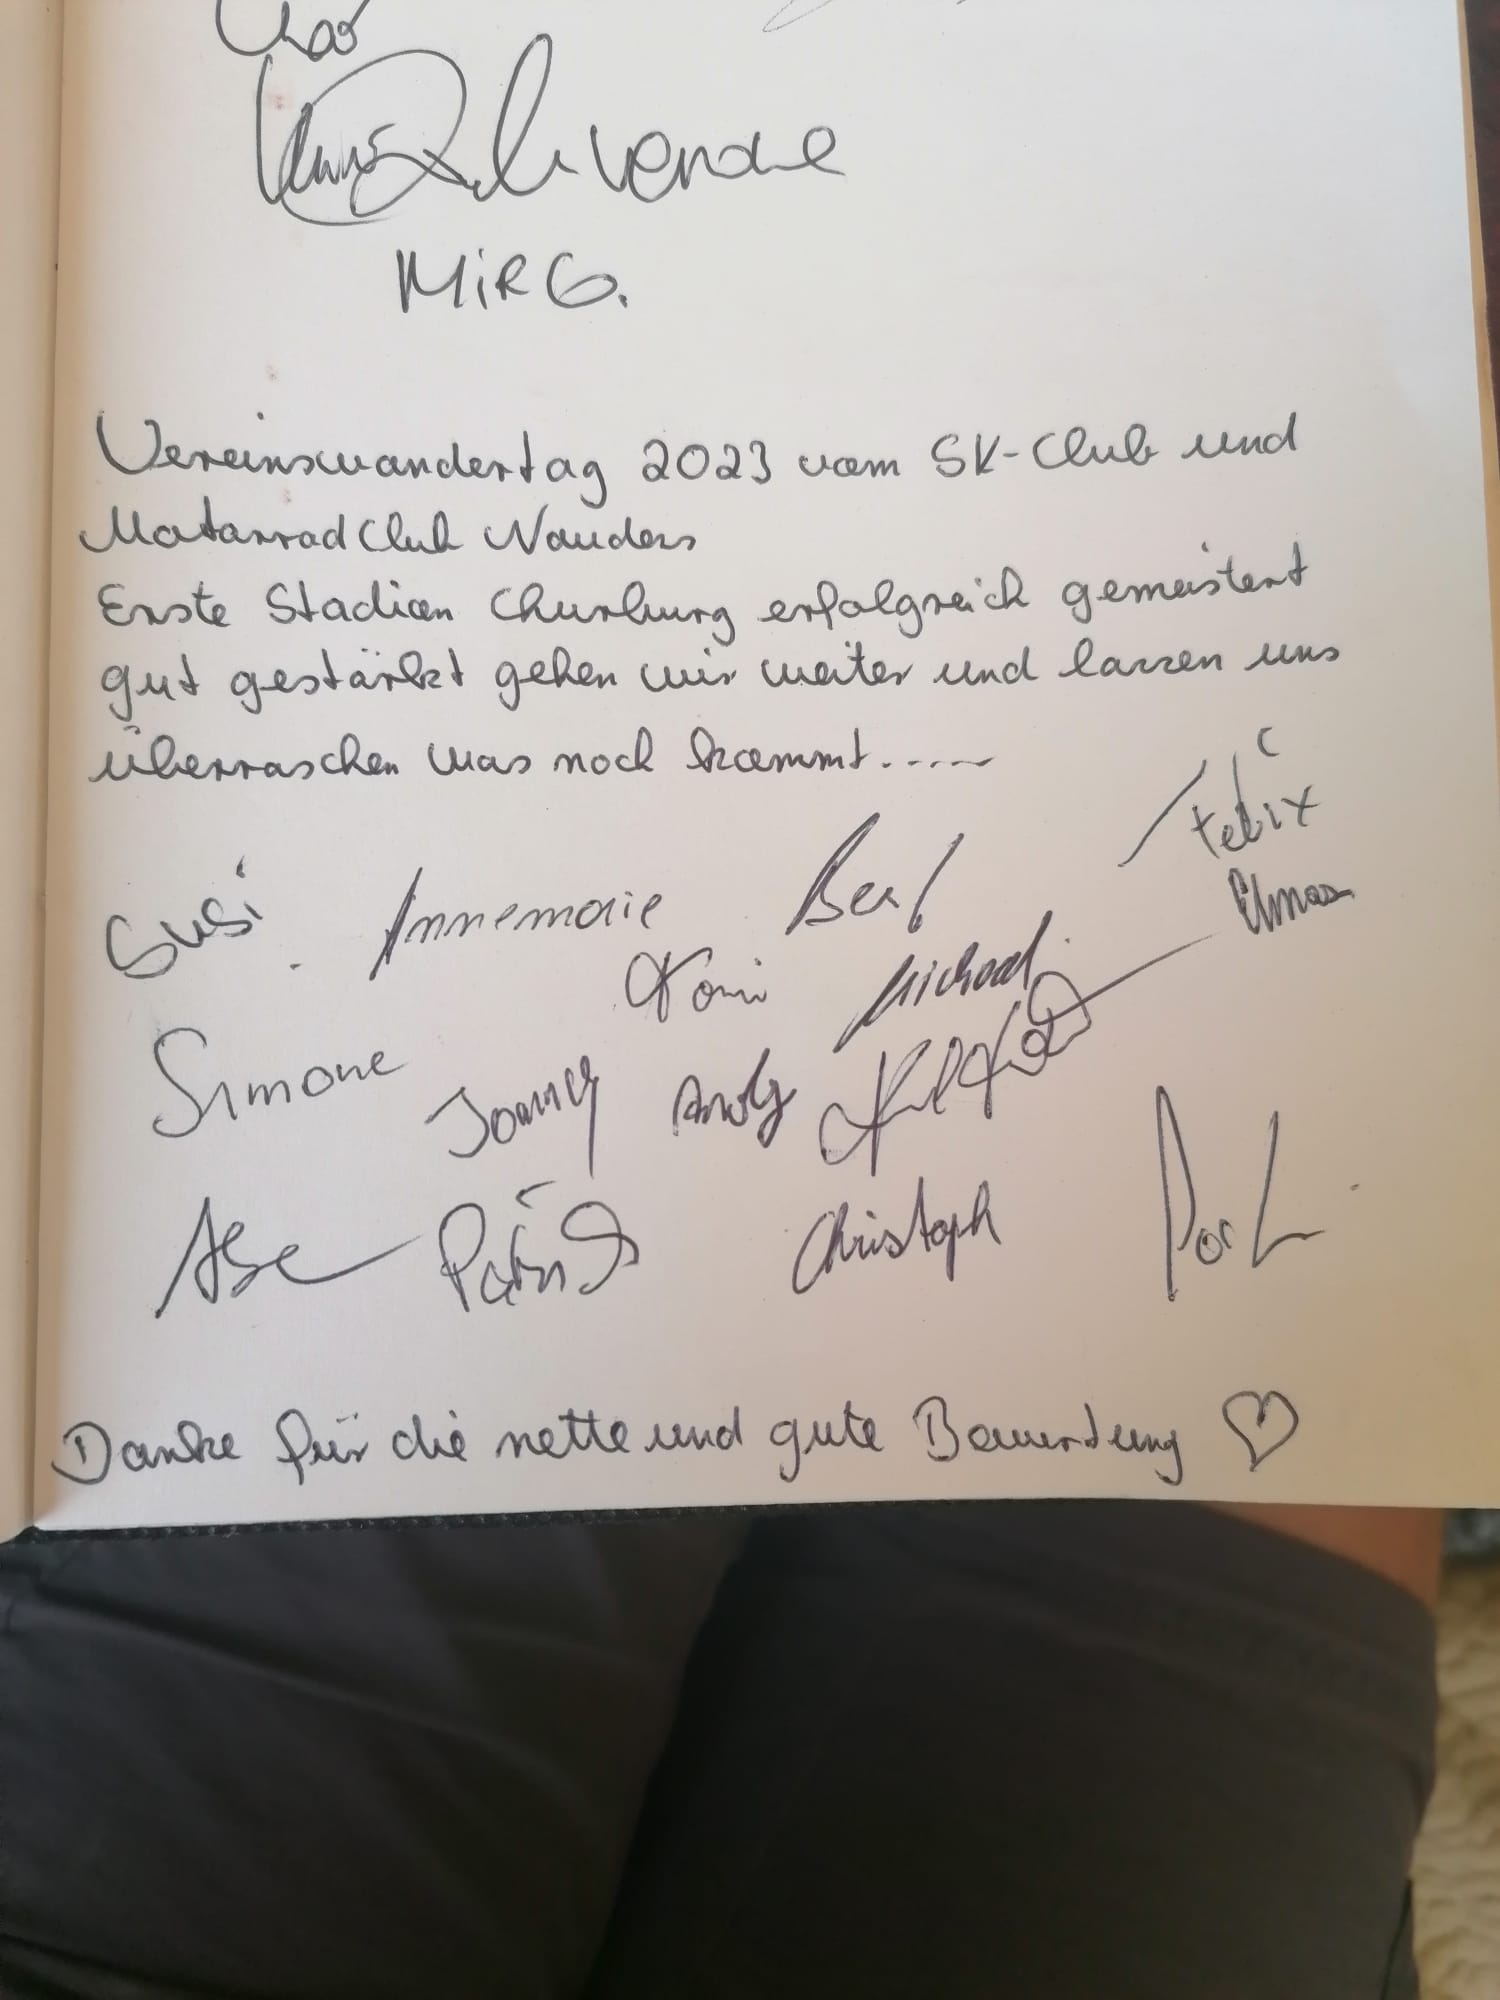 MiRG.
Vereinswandertag 2023 vom SK-Club und
Motorradclub Nauders
Erste Stadion Churburg erfolgreich gemeistert
gut gestärkt gehen wir weiter und lassen uns
überraschen was noch kommt.....
Felix
Susi Annemarie Bert Elmar
Toni Michael
Simone Andy
Patrick Christoph
Danke für die nette und gute Bewertung ♡